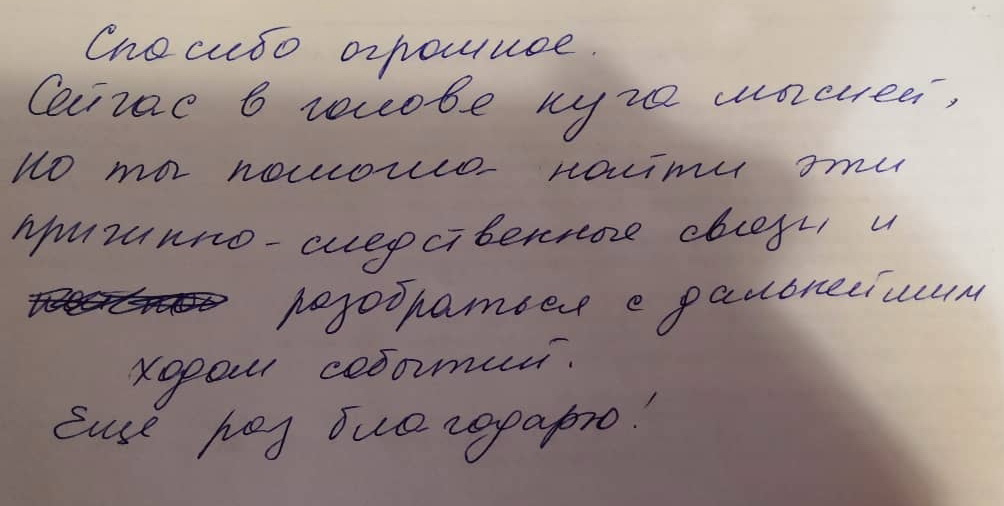 Спасибо огромное.
Сейчас в голове куча мыслей,
но ты помогла найти эти
причинно-следственные связи и
разобраться с дальнейшим
ходом событий.
Еще раз благодарю!